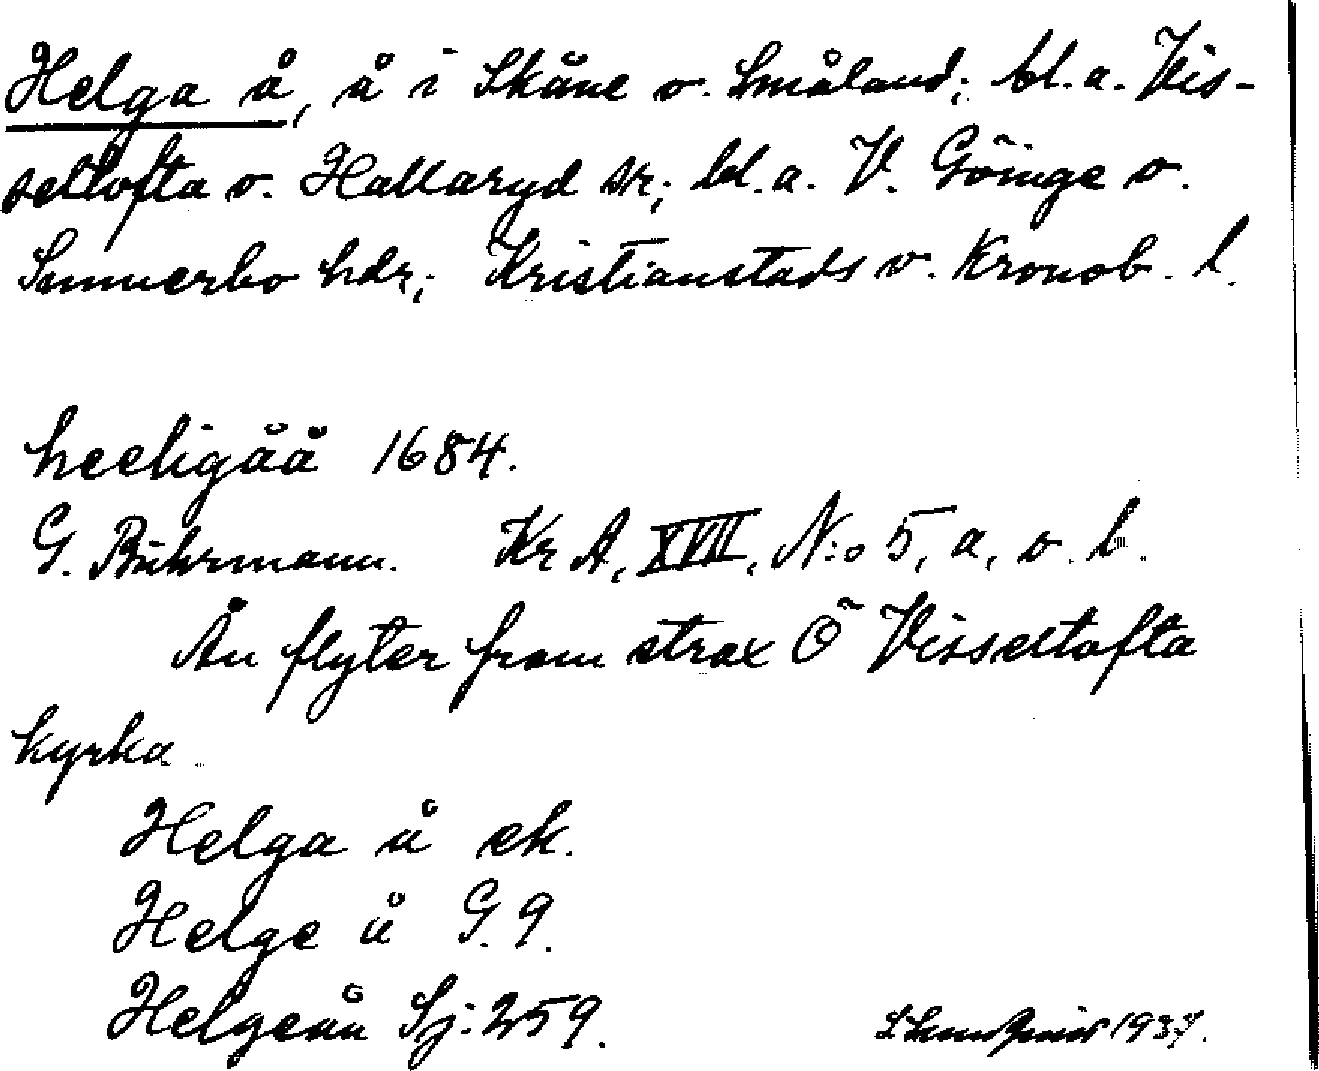 Helga å, å i Skåne o. Småland; bl.a. Vis-
seltofta o. Hallaryd sk; bl.a. V. Göinge o.
Sunnerbo hdr; Kristianstads o. Kronob. l.
heeligåå 1684.
G. Buhrmann. Kr A, XVII, N:o 5, a, o. b.
Ån flyter fram strax Ö Visseltofta
kyrka.
Helga å ek.
Helge å G. 9.
Helgeån Sj: 259.
1937.